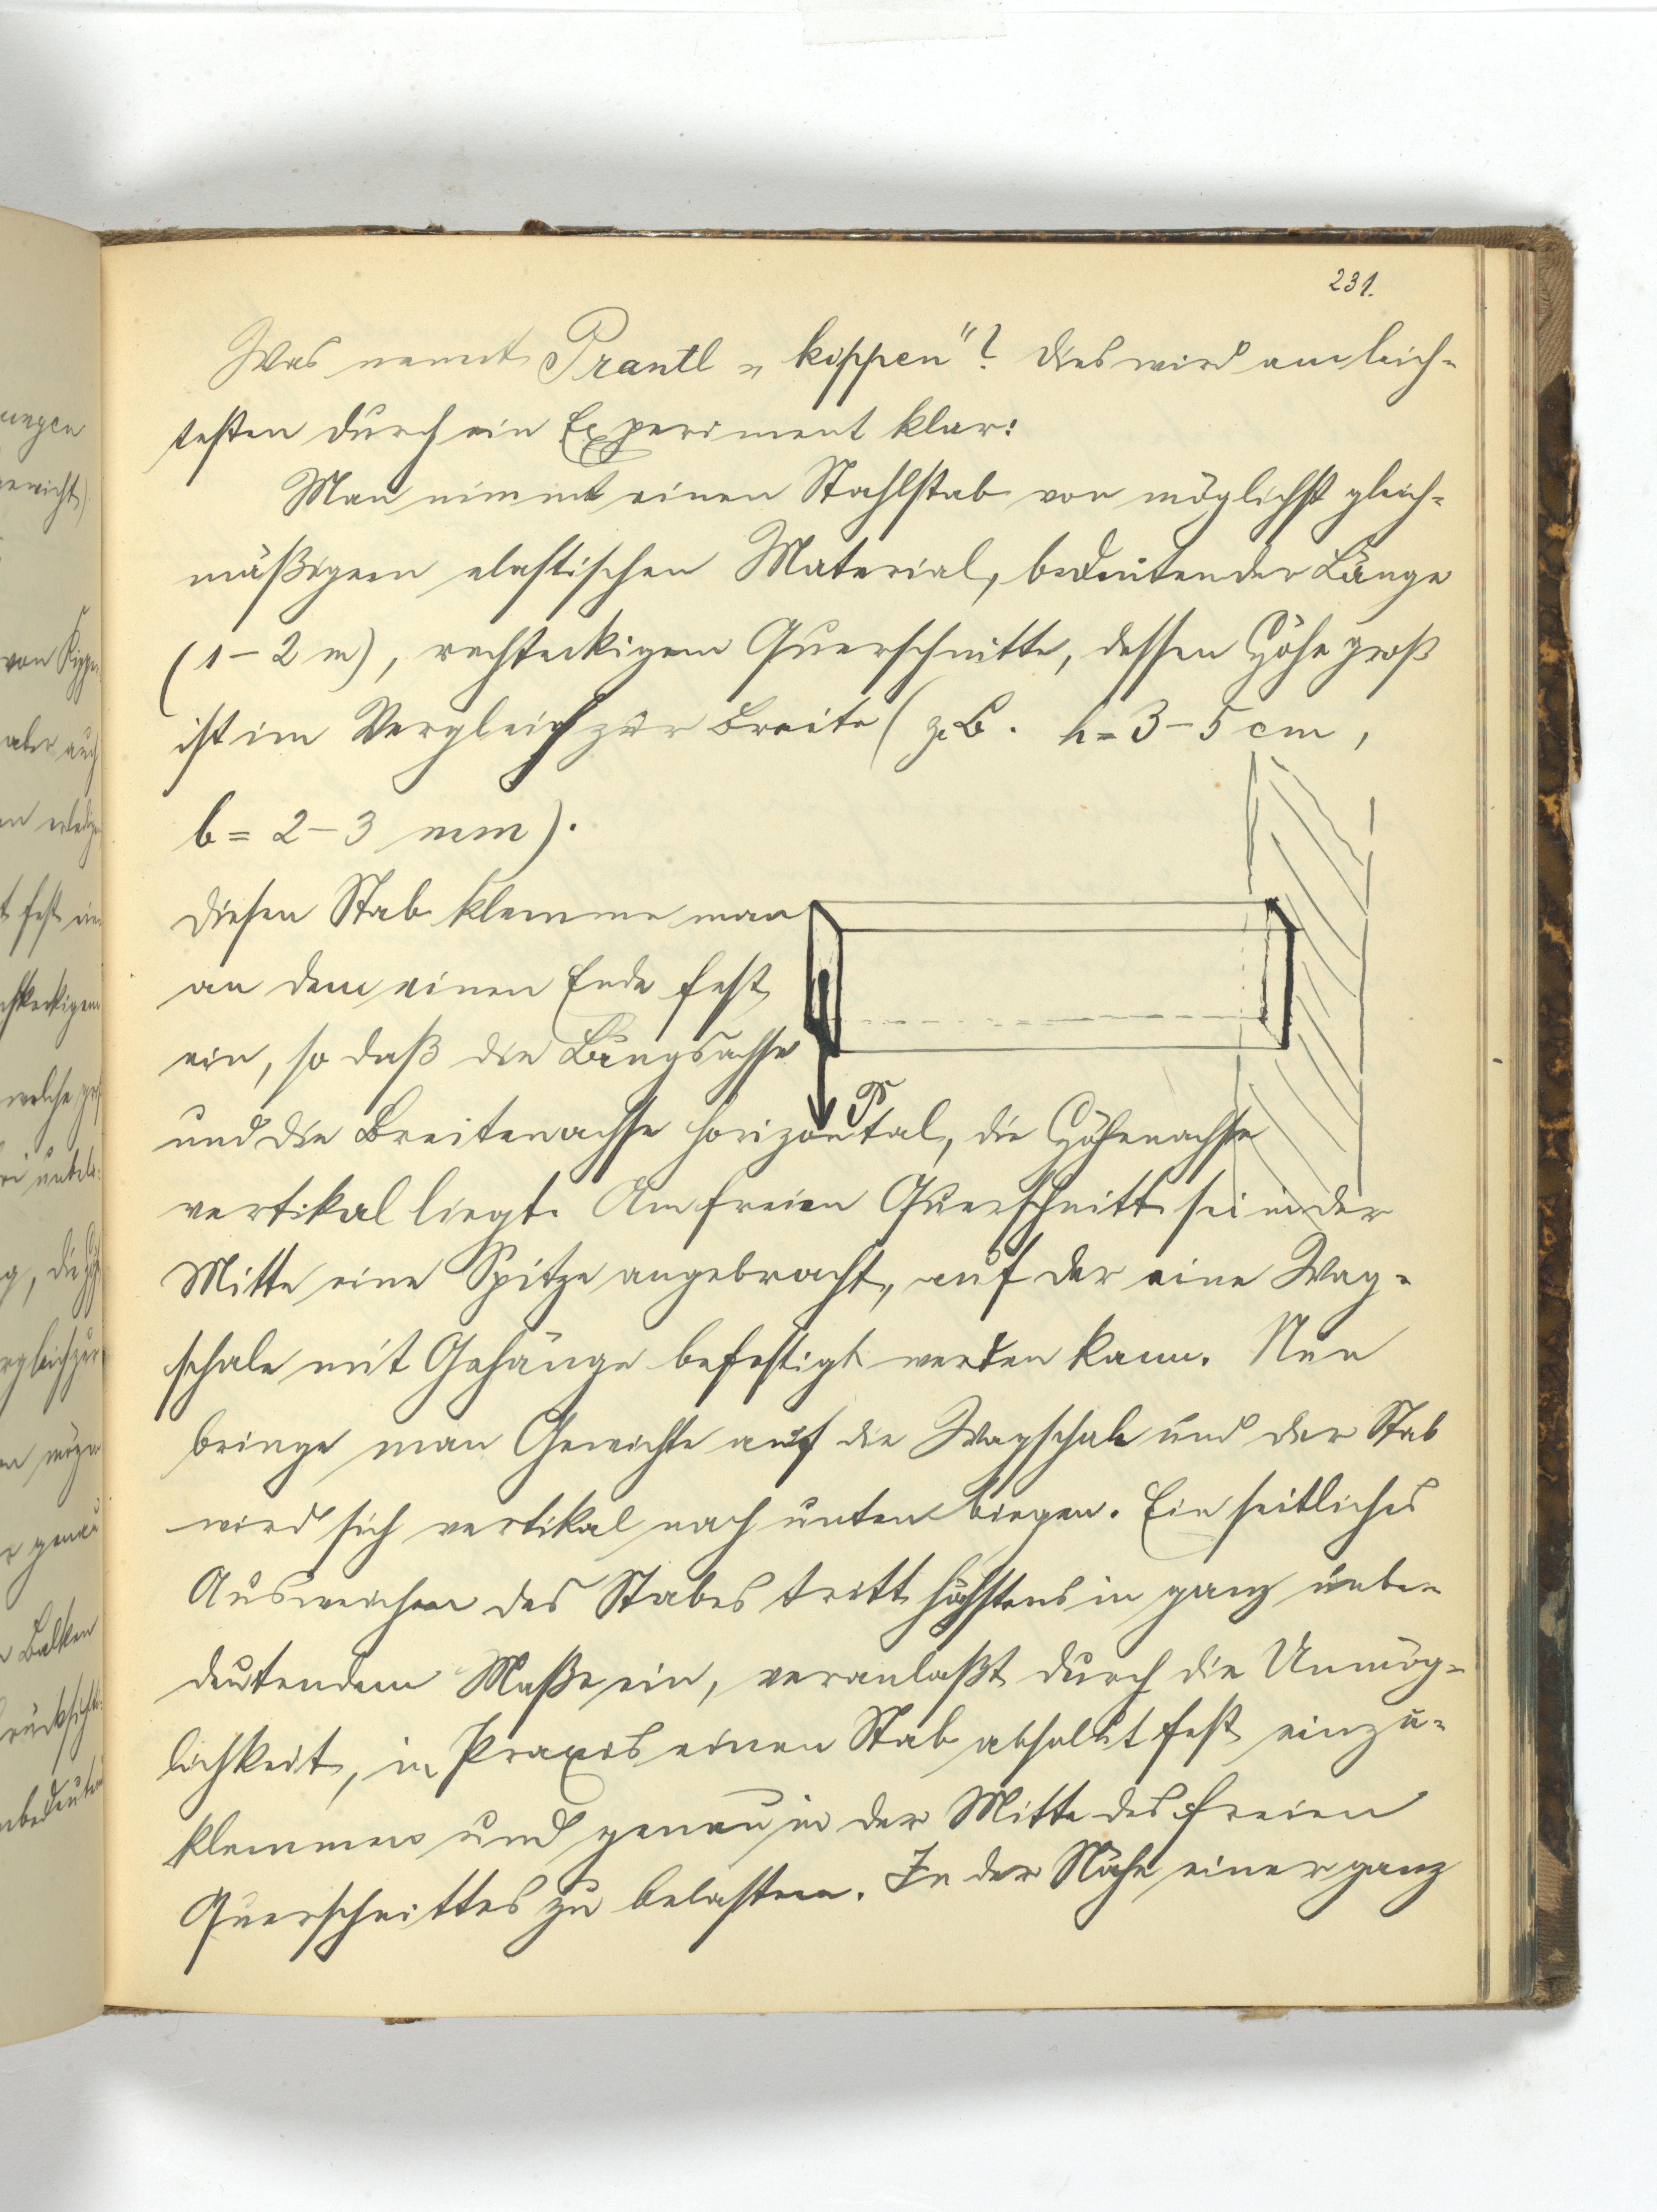 231.
Was nennt Prantl „kippen"? Dies wird am leich-
testen durch ein Experiment klar:
Man nimmt einen Stahlstab von möglichst gleich-
mäßigem elastischen Material, bedeutender Länge
(1 – 2 m), rechteckigem Querschnitte, dessen Höhe groß
ist im Vergleich zur Breite (z.B. h = 3 – 5 cm,
b = 2 – 3 mm).
Diesen Stab klemme man
an dem einen Ende fest
ein, so daß die Längsachse
P
und die Breitenachse horizontal, die Höhenachse
vertikal liegt. Am freien Querschnitt sei in der
Mitte eine Spitze angebracht, auf der eine Wag-
schale mit Gehänge befestigt werden kann. Nun
bringe man Gewichte auf die Wagschale und der Stab
wird sich vertikal nach unten biegen. Ein seitliches
Ausweichen des Stabes tritt höchstens in ganz unbe-
deutendem Maße ein, veranlaßt durch die Unmög-
lichkeit, in Praxis einen Stab absolut fest einzu-
klemmen und genau in der Mitte des freien
Querschnittes zu belasten. In der Nähe einer ganz
ungen
gewicht).
von Kippe
aber auch
fest ein
rechteckigem
welche
g, die
vergleich zur
n mögen
genau
Balken
rücksicht
unbedeuten